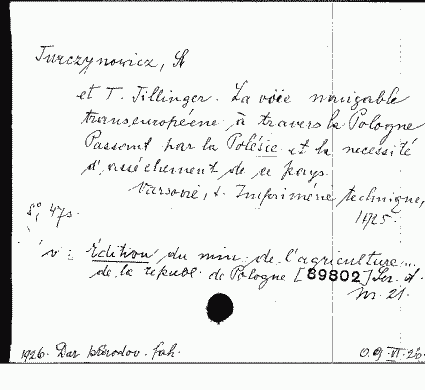 Turczynowicz, St
et T. Tillinger. La voie navigable
transeuropéene à travers la Pologne
Passent par la Polésie et la necessité
d'assèchement de ce pays
Varsovie, Imprimérie technique,
1925.
8°, 47s.
Édition du min. de l'agriculture...
de la républ. de Pologne [89802] Ser. A.
Nr. 21.
1926. Dar